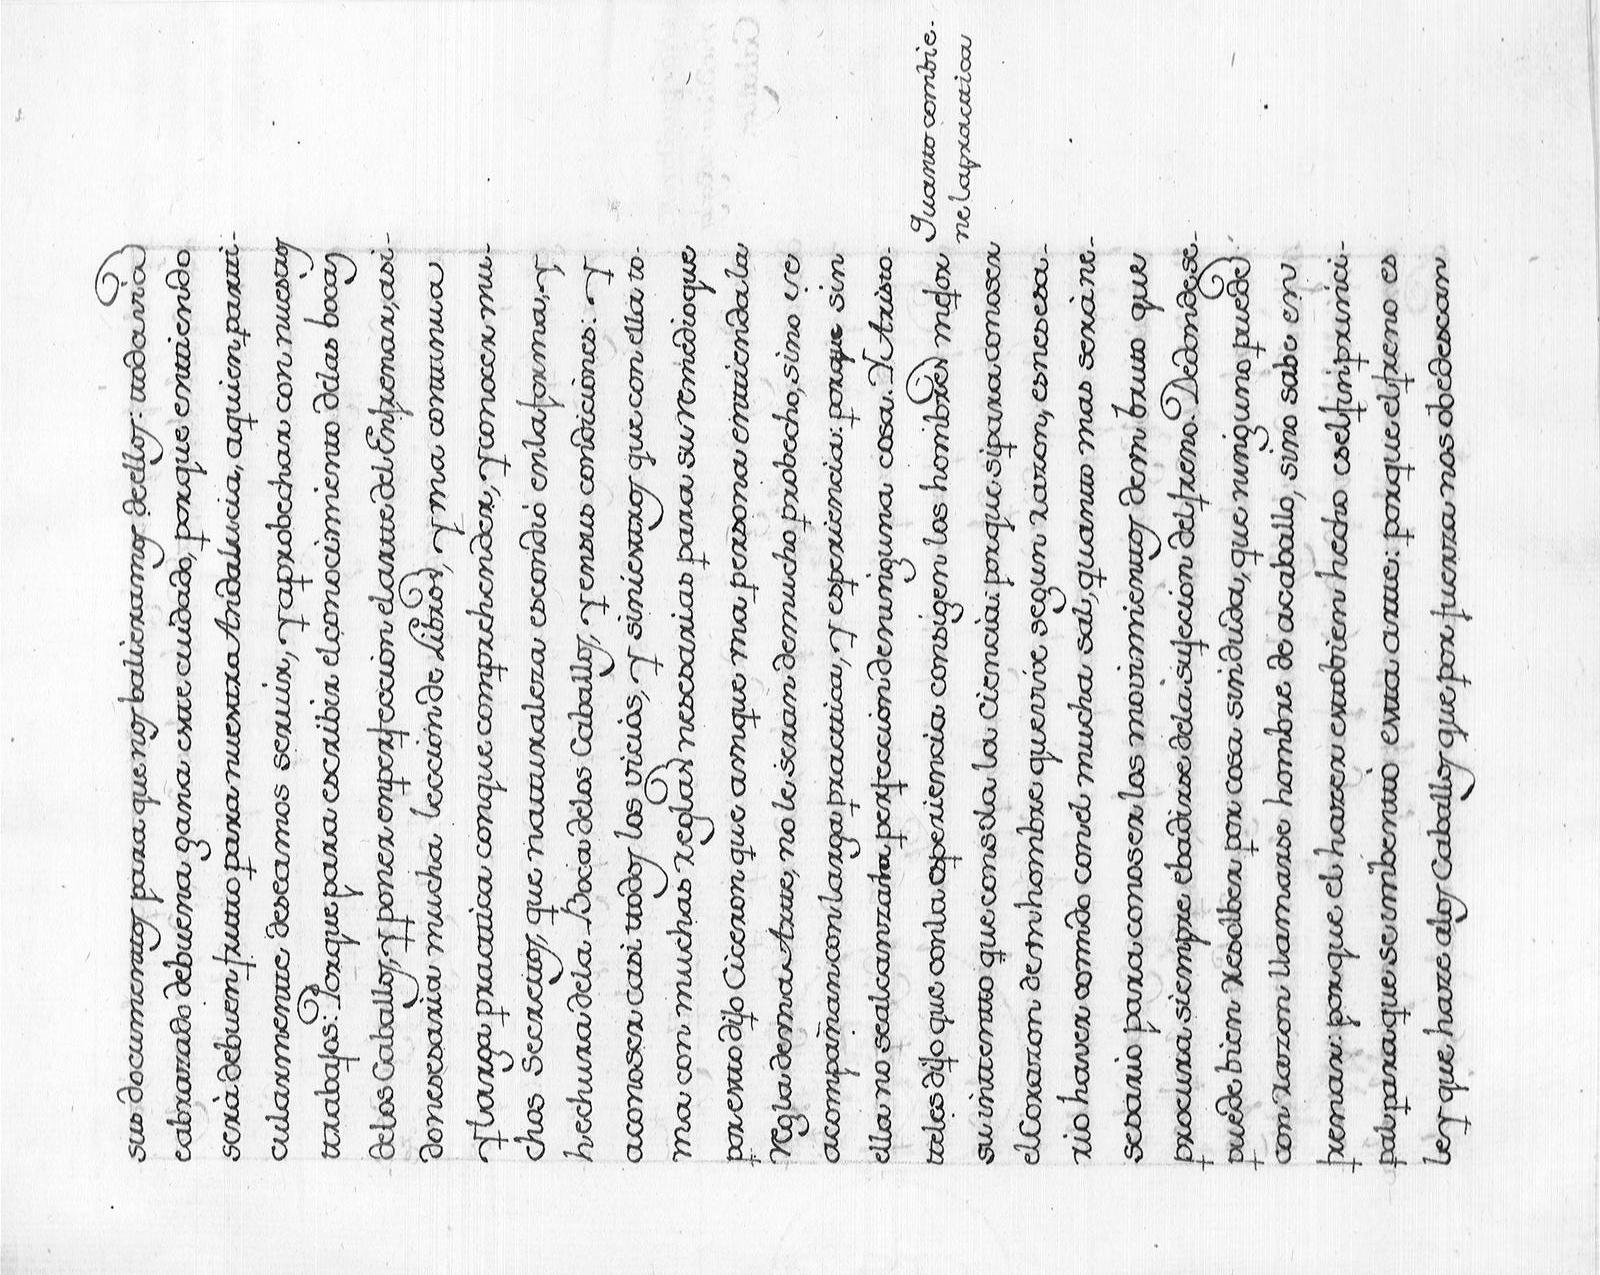 sus documentos para que nos balieramos de ellos: todavia
e abrazado de buena gana este cuidado, porque entiendo
seria de buen fruto para nuestra Andalucia, a quien parti-
cularmente deseamos servir, y aprobechar con nuestros
trabajos: Porque para escribir el conocimiento de las bocas
de los Caballos, y poner en perfeccion el arte del Enfrenar, asi-
do nesesaria mucha leccion de Libros, y ma continua
y larga practica con que comprehender, y conocer mu-
chos Secretos, que naturaleza escondió en la forma, y
hechura de la Boca de los Caballos, y en sus condiciones: y
a conoser casi todos los vicios, y siniestros que con ella to-
ma con muchas reglas nesesarias para su remedio que
por esto dijo Ciceron que amque ma, persona entienda la
Regla de ma Arte, no le seran de mucho probecho, sino se
acompañan con larga practica, y esperiencia: porque sin
ella no se alcanzara perfeccion de ninguna cosa. Y Aristo-
teles dijo que con la esperiencia consigen los hombres mejor
su intento que con sola la Ciencia: porque si para conoser
el Corazon de un hombre que vive segun razon, es nesesa-
rio haver comido con el mucha sal, quanto mas seria ne-
sesario para conoser los movimientos de un bruto que
procura siempre ebadirse de la sujecion del freno. De donde, se
puede bien resolber por cosa sin duda, que ninguno puede
con razon llamarse hombre de acaballo, sino sabe en
frenar: porque el hazer esto bien hecho es el fin princi-
pal para que se imbentó esta arte: porque el freno es
ley que haze a los Caballos que por fuerza nos obedescan
Quanto combie-
ne la practica